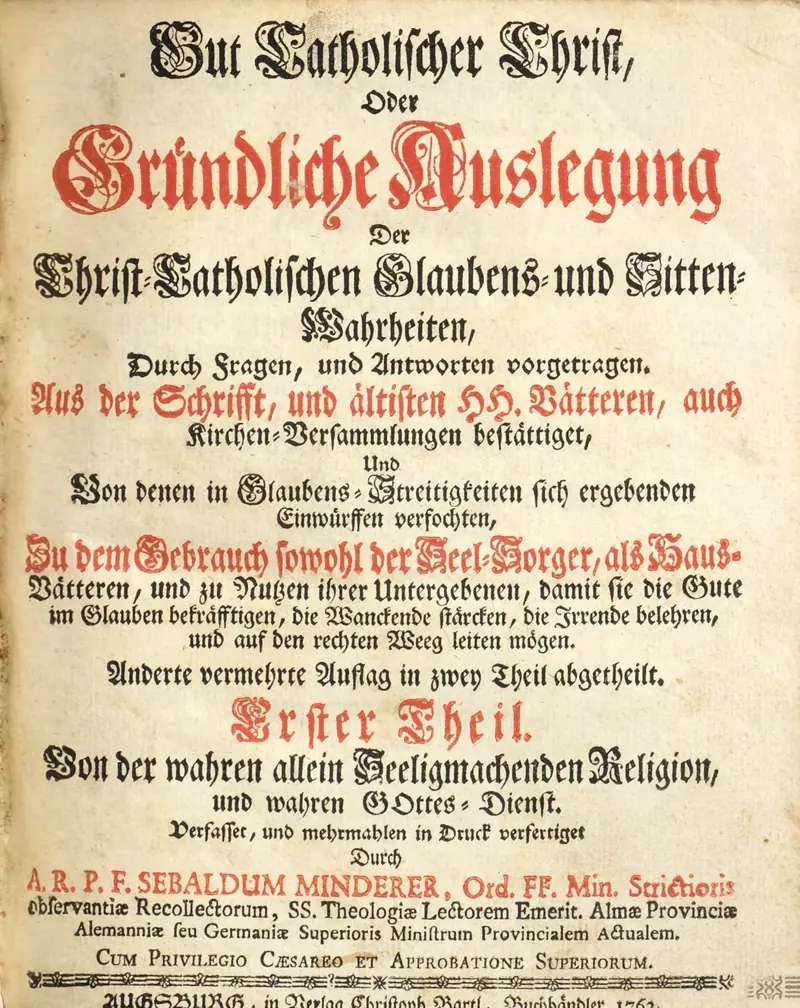 Gut Catholischer Christ,
Oder
Gründliche Auslegung
Der
Christ-Catholischen Glaubens- und Sitten-
Wahrheiten,
Durch Fragen, und Antworten vorgetragen.
Aus der Schrifft, und ältisten HH. Vätteren, auch
Kirchen-Versammlungen bestättiget,
Und
Von denen in Glaubens-Streitigkeiten sich ergebenden
Einwürffen verfochten,
Zu dem Gebrauch sowohl der Seel-Sorger, als Haus-
Vätteren, und zu Nutzen ihrer Untergebenen, damit sie die Gute
im Glauben bekräfftigen, die Wanckende stärcken, die Irrende belehren,
und auf den rechten Weeg leiten mögen.
Anderte vermehrte Auflag in zwey Theil abgetheilt.
Erster Theil.
Von der wahren allein Seeligmachenden Religion,
und wahren GOttes-Dienst.
Verfasset, und mehrmahlen in Druck verfertiget
Durch
A. R. P. F. SEBALDUM MINDERER, Ord. FF. Min. Strictioris
observantiæ Recollectorum, SS. Theologiæ Lectorem Emerit. Almæ Provinciæ
Alemanniæ seu Germaniæ Superioris Ministrum Provincialem Actualem.
CUM PRIVILEGIO CÆSAREO ET APPROBATIONE SUPERIORUM.
AUGSBURG, in Verlag Christoph Bartl, Buchhändler 1762.